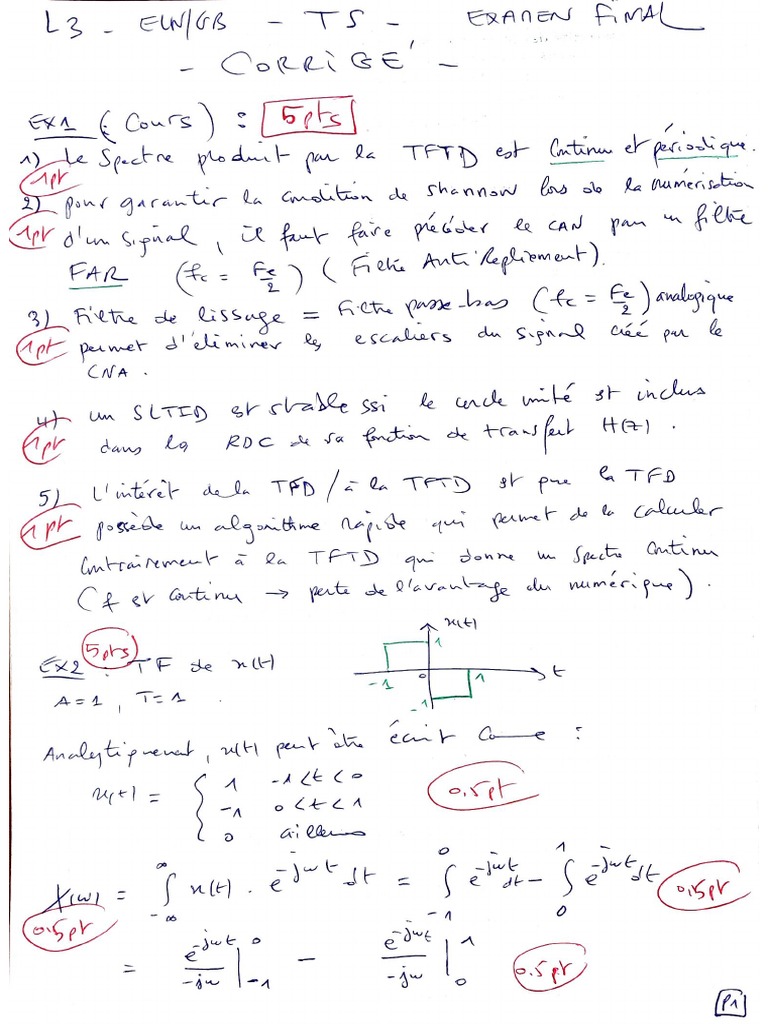 L3 - ELN/GB - TS - EXAMEN FINAL
- CORRIGÉ -
EX1 (Cours) : 5pts
1) Le Spectre produit par la TFTD est Continu et périodique.
1pt
2) pour garantir la condition de shannon lors de la numérisation
1pt d'un signal, il faut faire précéder le CAN par un filtre
FAR (fc = Fe/2) (Filtre Anti Repliement).
3) Filtre de lissage = Filtre passe-bas (fc = Fe/2) analogique
1pt permet d'éliminer les escaliers du signal créé par le
CNA.
4) un SLTID est stable ssi le cercle unité est inclus
1pt dans la RDC de sa fonction de transfert H(z).
5) L'intérêt de la TFD / à la TFTD est que la TFD
1pt possède un algorithme rapide qui permet de la calculer
Contrairement à la TFTD qui donne un spectre continu
(f est continu → perte de l'avantage du numérique).
EX2 : 5pts TF de x(t)
A=1, T=1.
x(t)
1
-1 0 1 t
-1
Analytiquement, x(t) peut être écrit Comme :
x(t) = { 1 -1<t<0
-1 0<t<1
0 ailleurs
0.5pt
X(w) = ∫_{-∞}^{∞} x(t) . e^{-jwt} dt = ∫_{-1}^{0} e^{-jwt} dt - ∫_{0}^{1} e^{-jwt} dt 0.5pt
0.5pt
= e^{-jwt}/-jw |_{-1}^{0} - e^{-jwt}/-jw |_{0}^{1} 0.5pt
P1